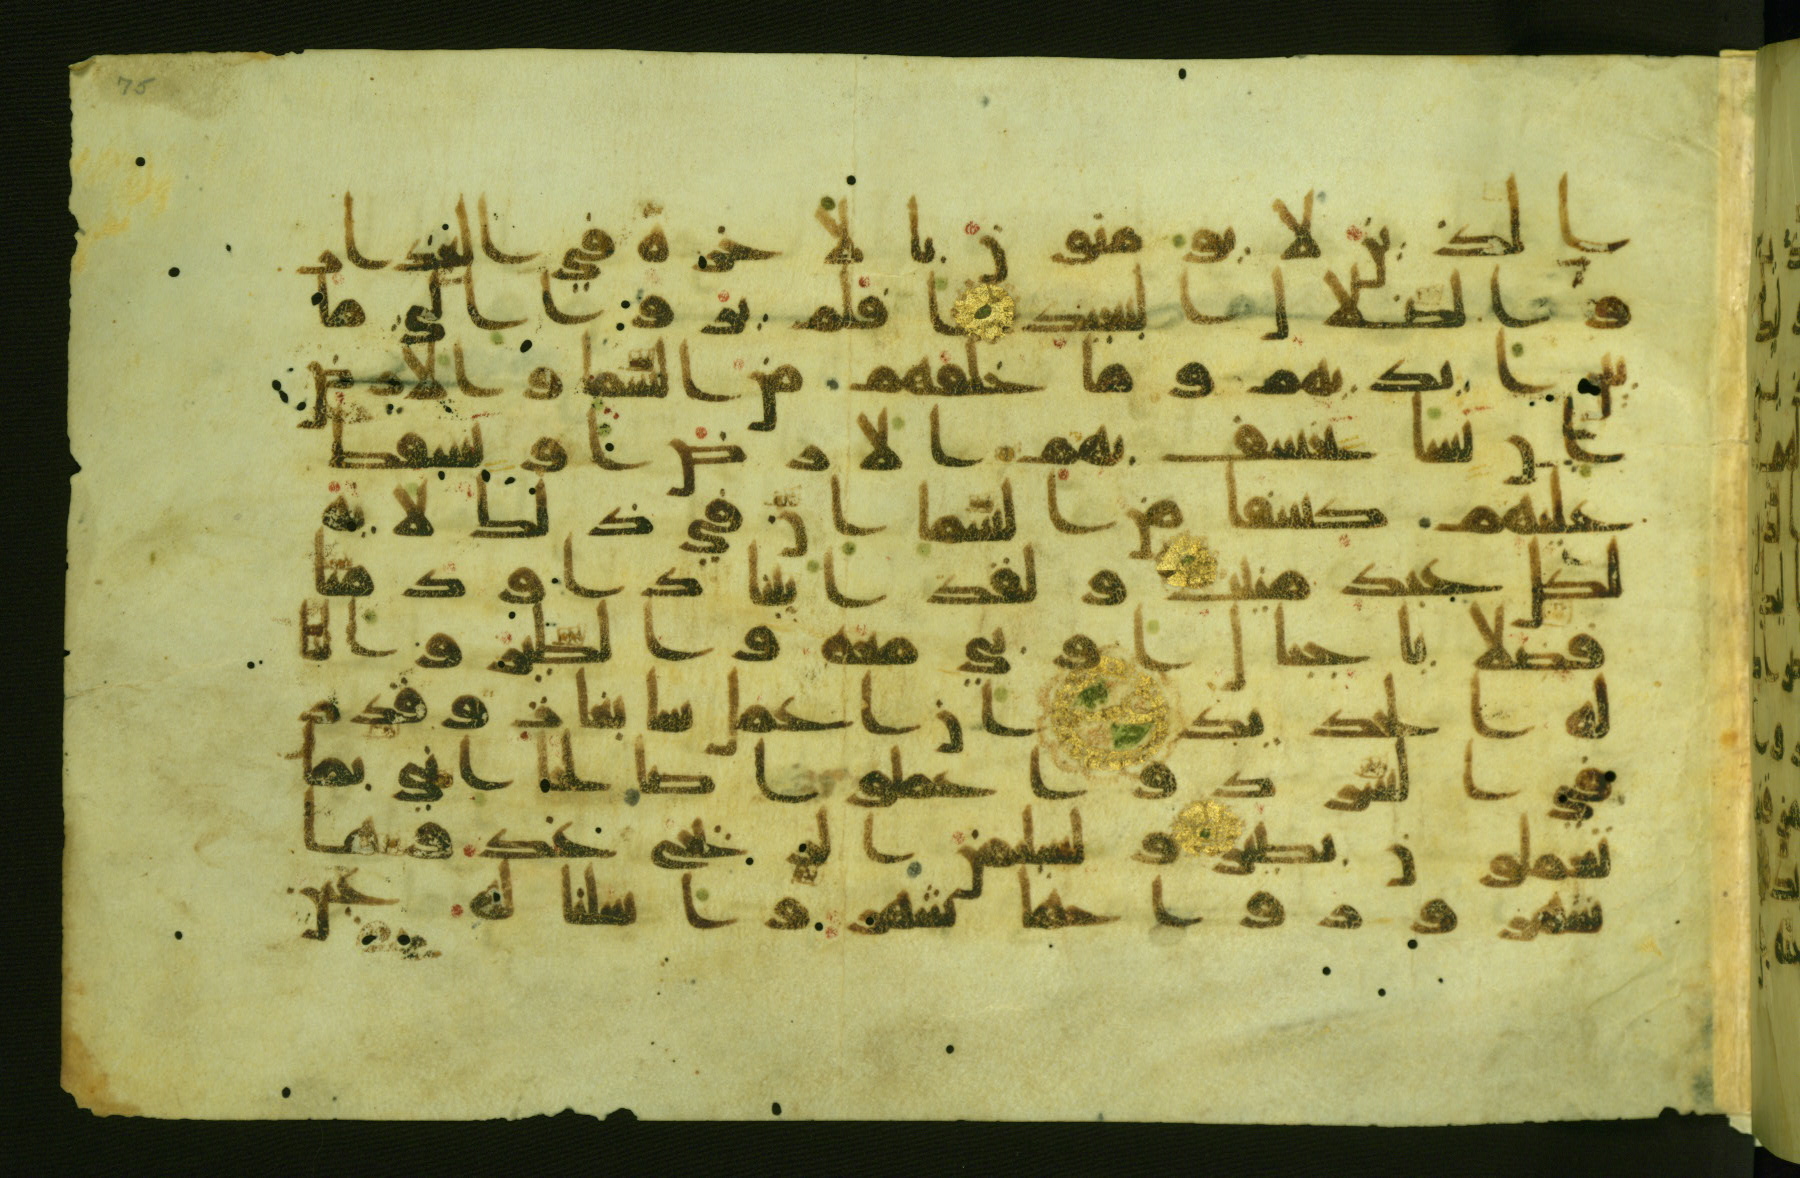 75
بل الذين لا يومنون بالاخرة في العذاب
والضلال البعيد افلم يروا الى ما
بين ايديهم وما خلفهم من السما والارض
ان نشا نخسف بهم الارض او نسقط
عليهم كسفا من السما ان في ذلك لاية
لكل عبد منيب ولقد اتينا داود منا
فضلا يا جبال اوبي معه والطير والنا
له الحديد ان اعمل سابغات وقدر
في السرد واعملوا صالحا اني بما
تعملون بصير ولسليمن الريح غدوها
شهر ورواحها شهر واسلنا له عين